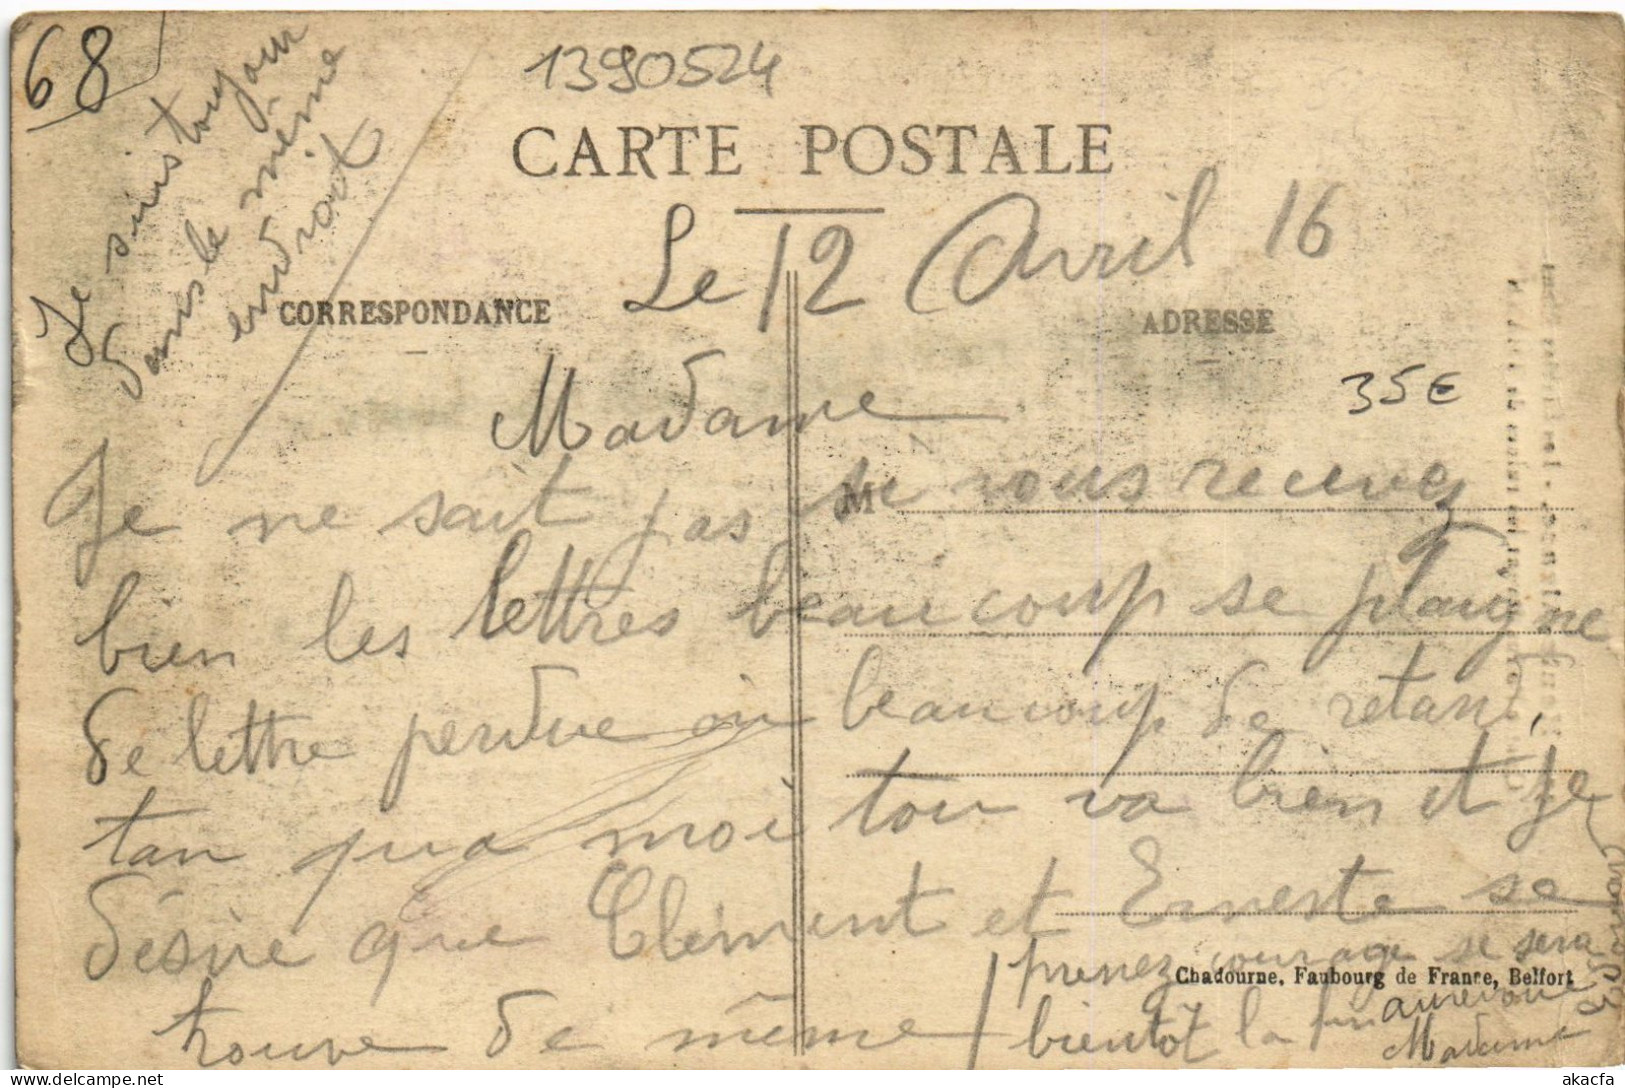 68
1390524
Je suis toujour
dans le même
endroit
CARTE POSTALE
Le 12 Avril 16
CORRESPONDANCE
ADRESSE
35€
Madame
M
Je ne sait pas si vous recevez
bien les lettres beaucoup se plaigne
de lettre perdue ou beaucoup de retar
tan qua moi tou va bien et je
désire que Clement et Erneste se
trouve de même
prenez courage se sera
bientôt la fin
aurevoir
Madame
Chadourne, Faubourg de France, Belfort
akacfa